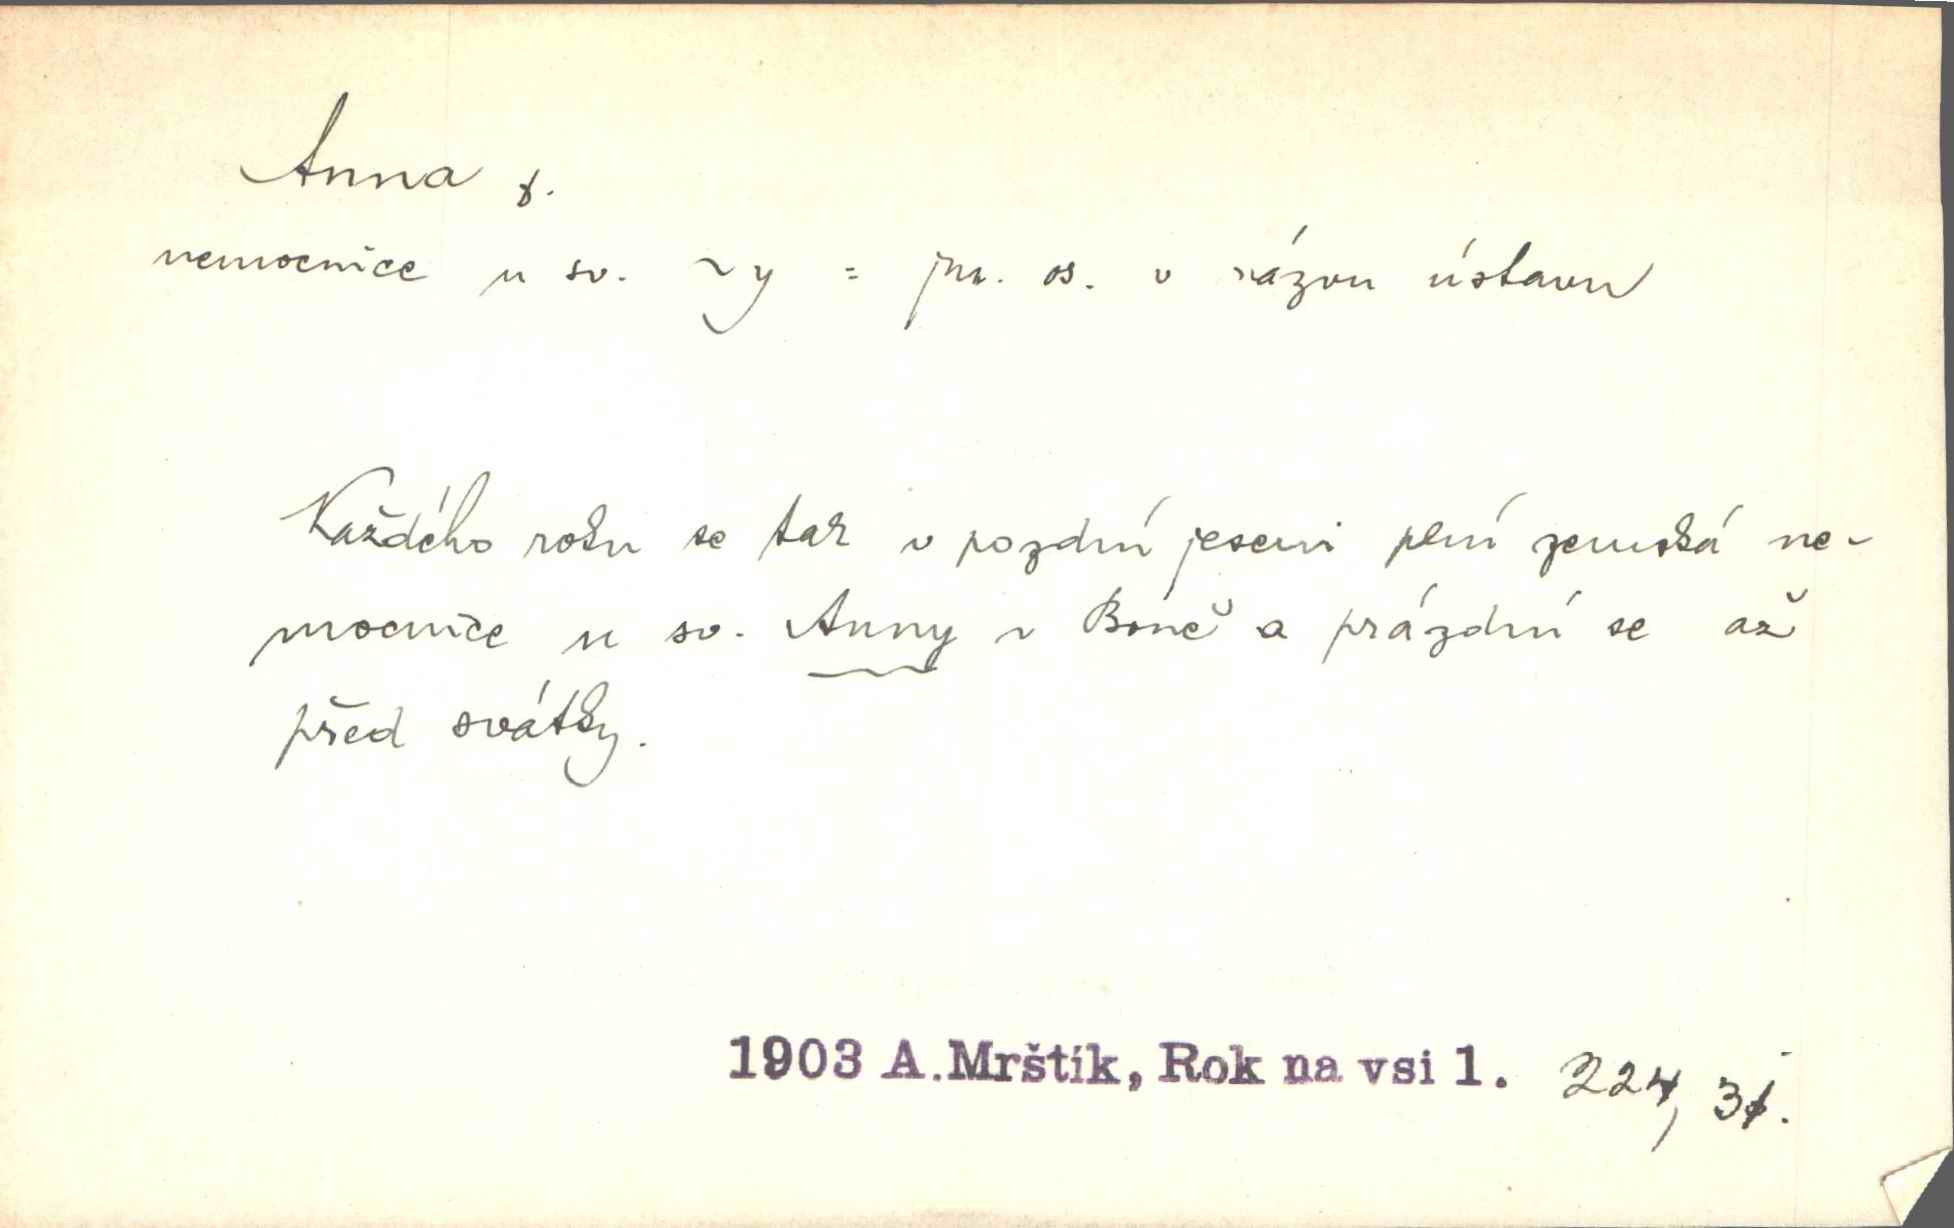 Anna f.
nemocnice u sv. ~y = jm. os. v názvu ústavu
Každého roku se tak v pozdní jeseni plní zemská ne-
mocnice u sv. Anny v Brně a prázdní se až
před svátky.
1903 A.Mrštík, Rok na vsi 1. 224,